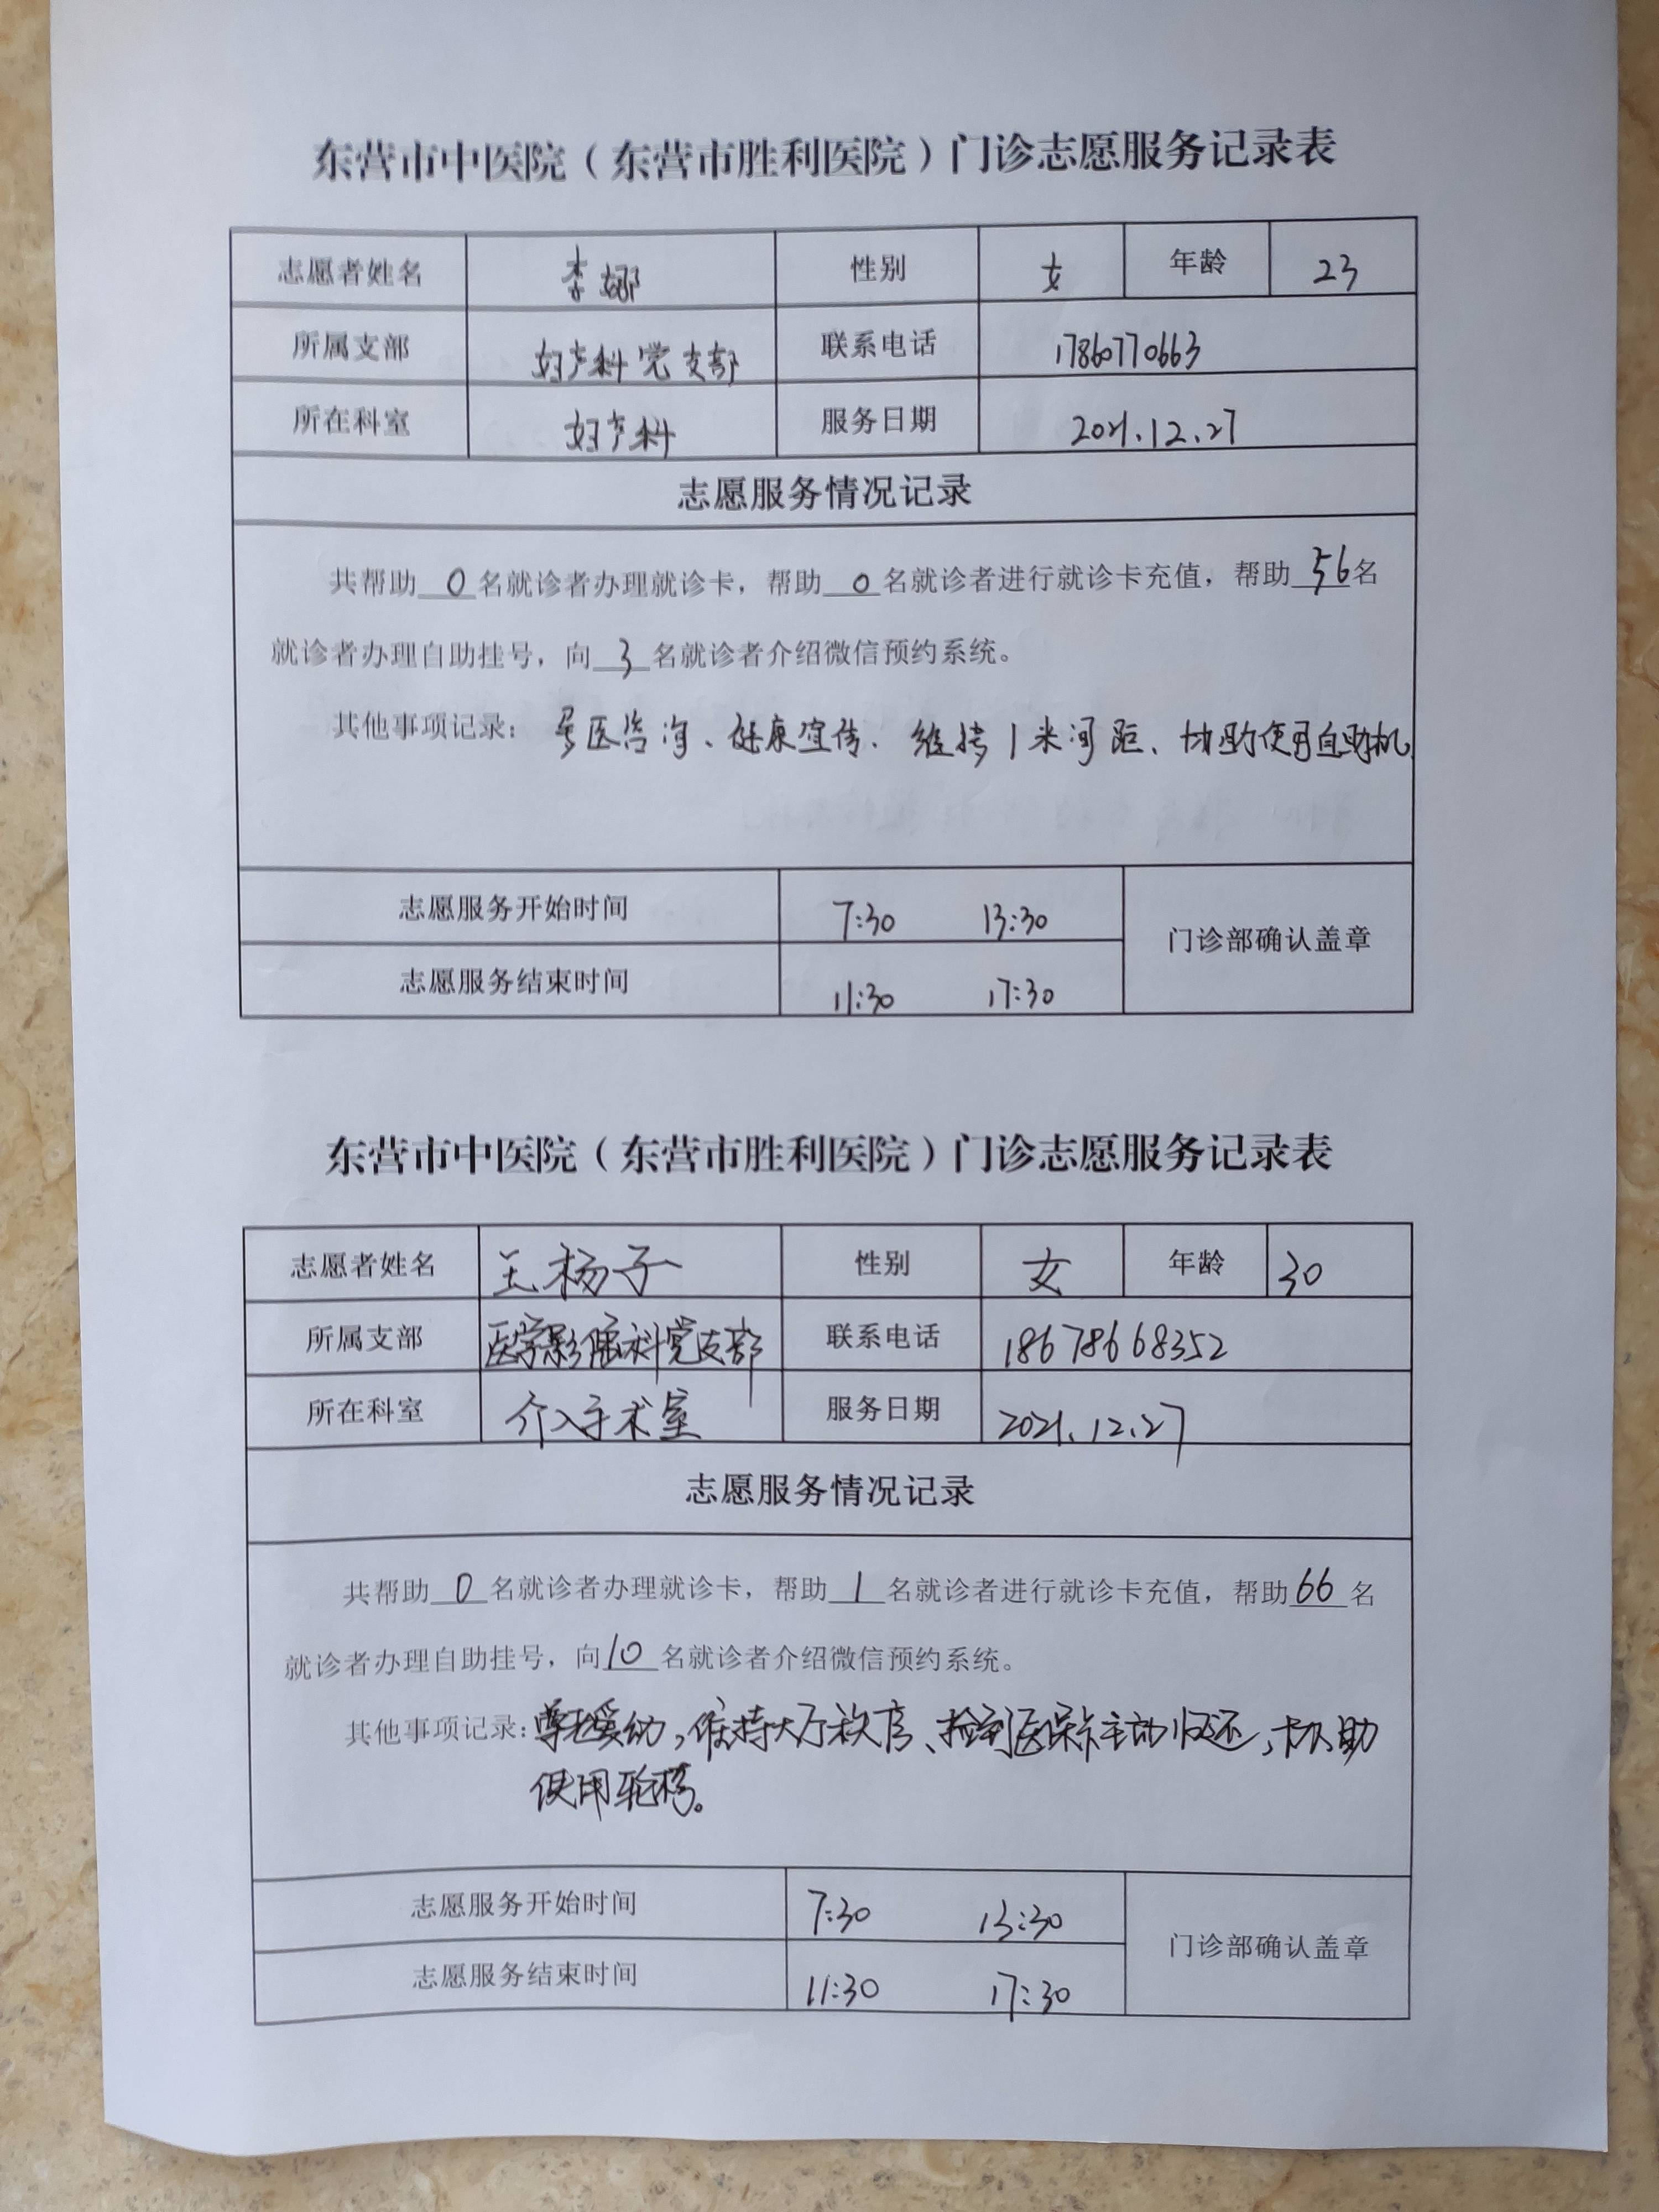 东营市中医院（东营市胜利医院）门诊志愿服务记录表
志愿者姓名 李娜 性别 女 年龄 23
所属支部 妇产科党支部 联系电话 17860770663
所在科室 妇产科 服务日期 2021.12.27
志愿服务情况记录
共帮助0名就诊者办理就诊卡，帮助0名就诊者进行就诊卡充值，帮助56名
就诊者办理自助挂号，向3名就诊者介绍微信预约系统。
其他事项记录：导医咨询、健康宣传、维持1米间距、协助使用自助机
志愿服务开始时间 7:30 13:30
门诊部确认盖章
志愿服务结束时间 11:30 17:30
东营市中医院（东营市胜利医院）门诊志愿服务记录表
志愿者姓名 王杨子 性别 女 年龄 30
所属支部 医学影像科党支部 联系电话 18678668352
所在科室 介入手术室 服务日期 2021.12.27
志愿服务情况记录
共帮助0名就诊者办理就诊卡，帮助1名就诊者进行就诊卡充值，帮助66名
就诊者办理自助挂号，向10名就诊者介绍微信预约系统。
其他事项记录：尊老爱幼，维持大厅秩序、捡到医保卡主动归还，协助
使用轮椅。
志愿服务开始时间 7:30 13:30
门诊部确认盖章
志愿服务结束时间 11:30 17:30